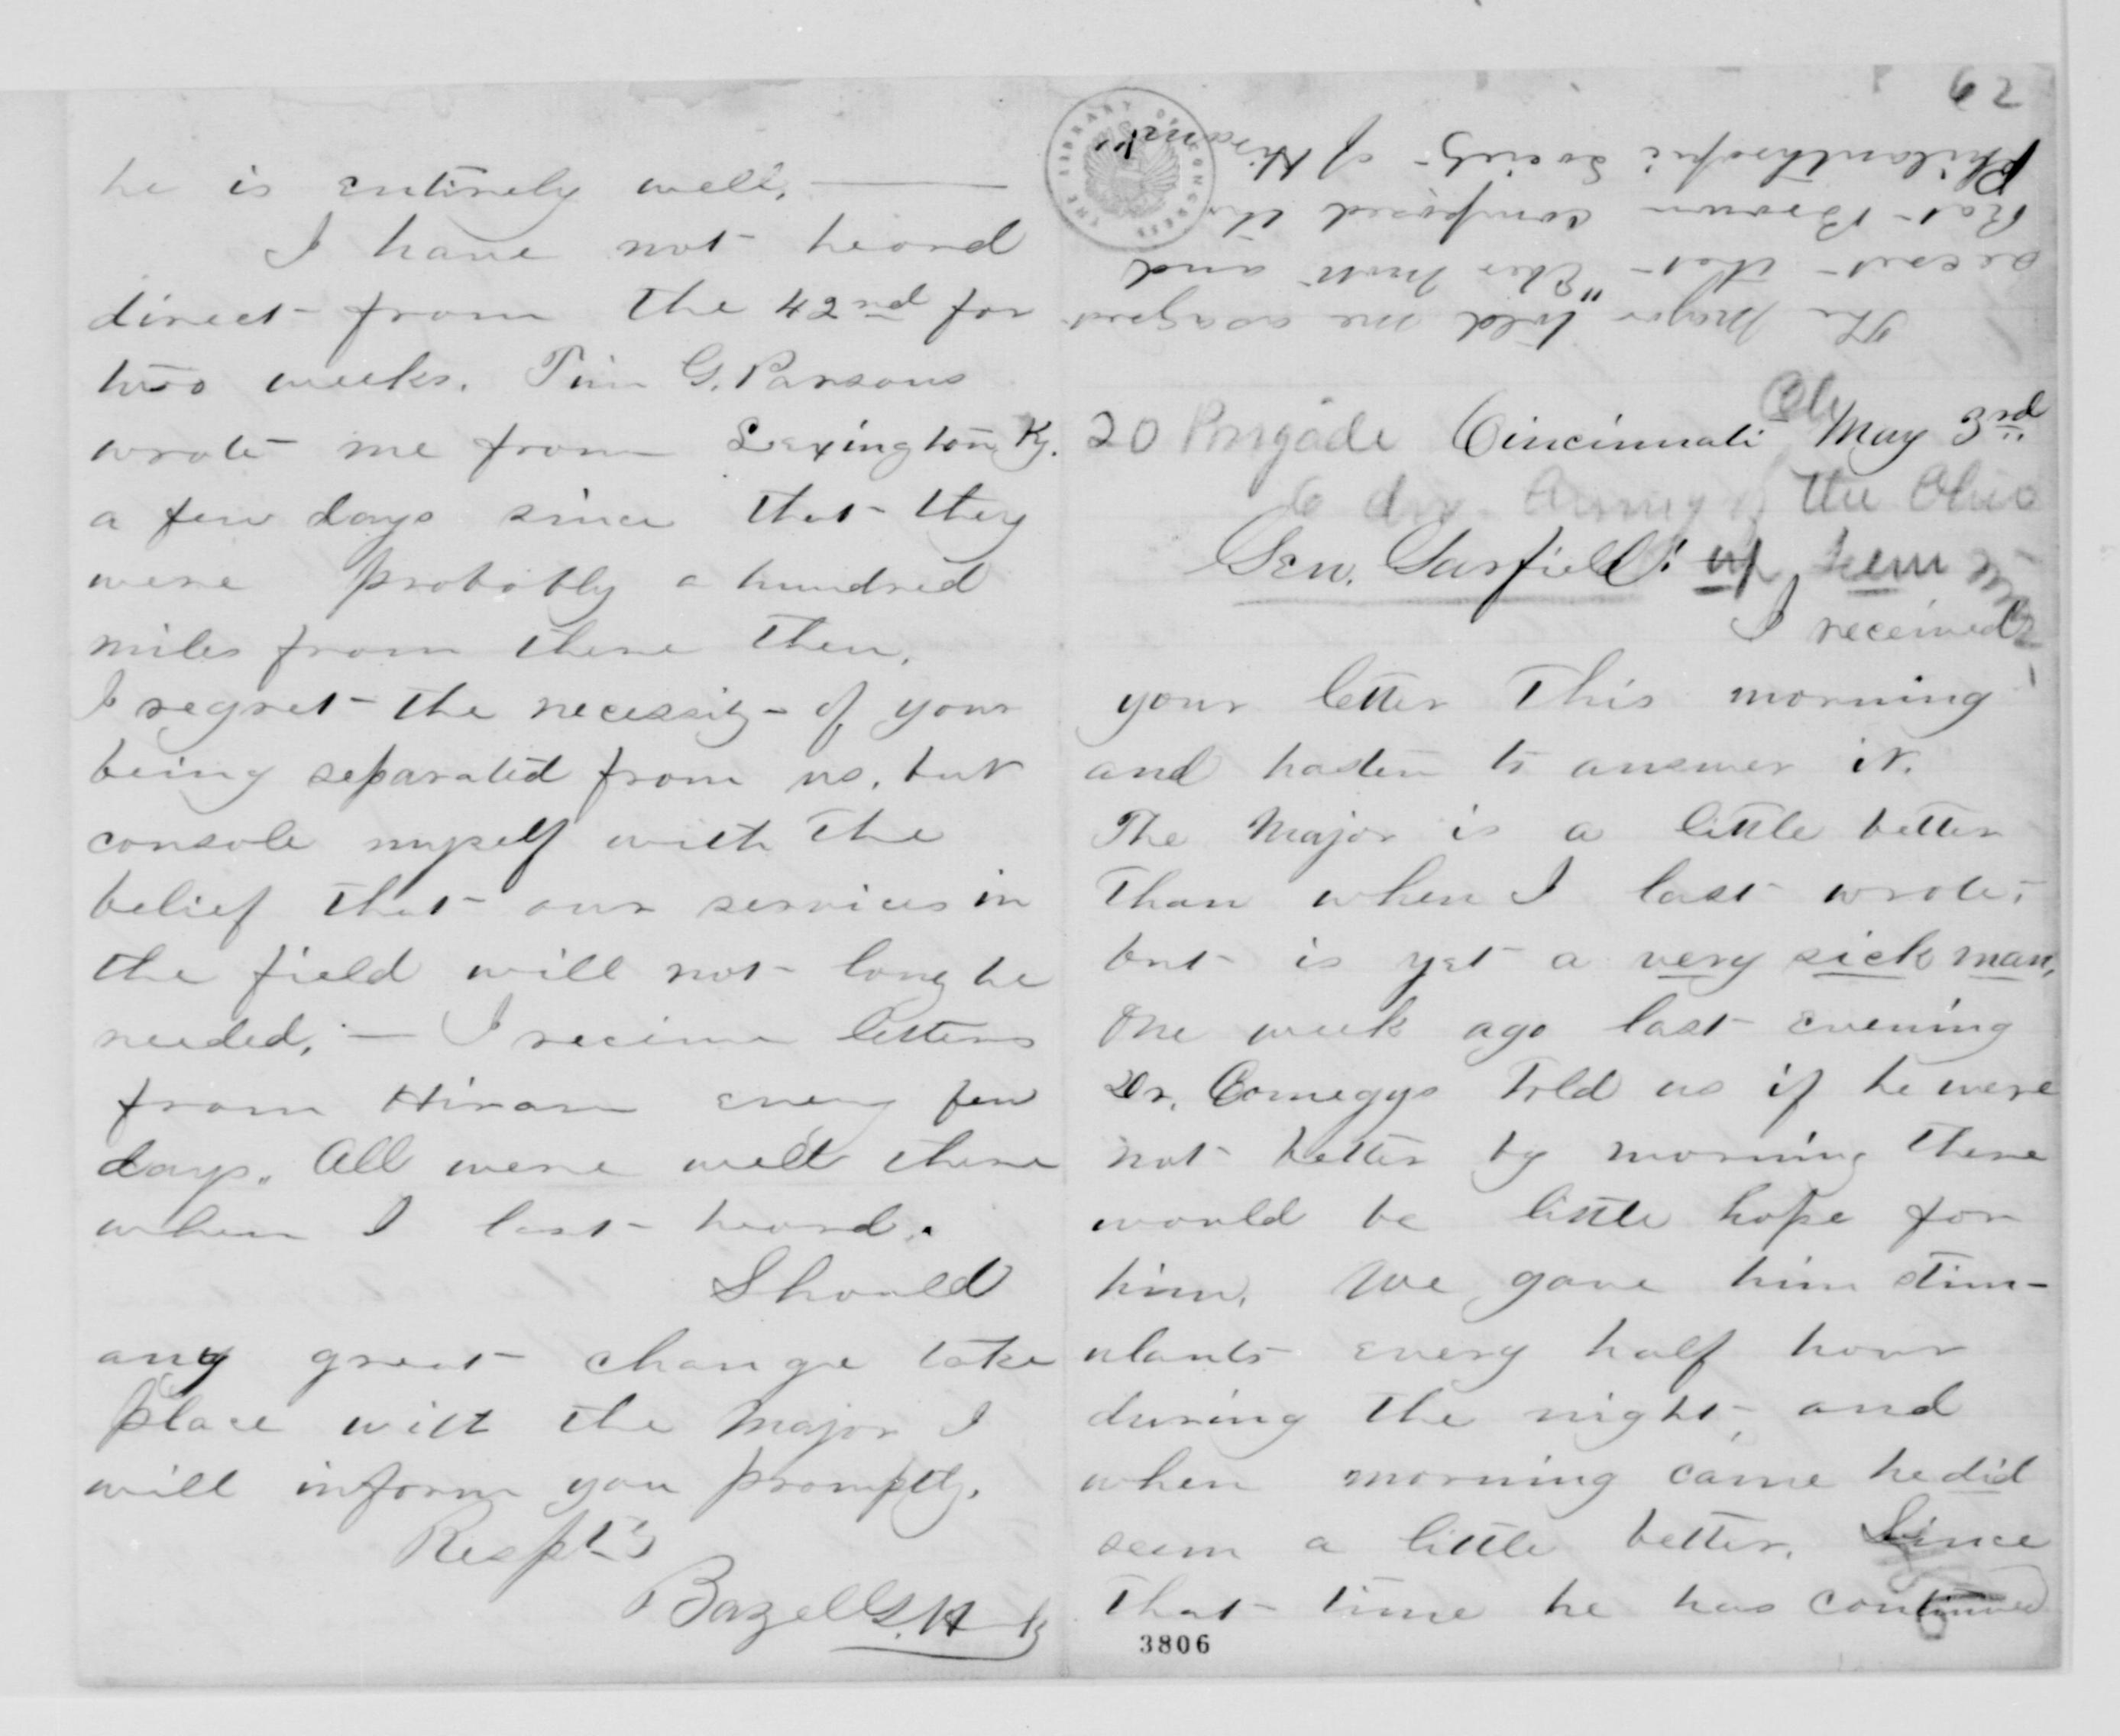 62
The Major told me asagreat
secret that "Elis Nutt" and
Nat Brown composed the
Philanthropic Society of Hiram
THE LIBRARY OF CONGRESS
20 Brigade Cincinnati May 3rd
6 div Army of the Ohio
Gen. Garfield: up tenn
I received
your letter This morning
and hasten to answer it.
The Major is a little better
Than when I last wrote,
but is yet a very sick man,
One week ago last evening
Dr. Comegys told us if he were
not better by morning there
would be little hope for
him. We gave him stim-
ulants every half hour
during the night, and
when morning came he did
seem a little better. Since
that time he has continued
3806
he is entirely well. —
I have not heard
direct from the 42nd for
two weeks. Tim G. Parsons
wrote me from Lexington Ky.
a few days since that they
were probably a hundred
miles from there then.
I regret the necessity of your
being separated from us, but
console myself with the
belief that our services in
the field will not long be
needed. — I receive letters
from Hiram every few
days. All were well there
when I last heard.
Should
any great change take
place with the Major I
will inform you promptly.
Resptly